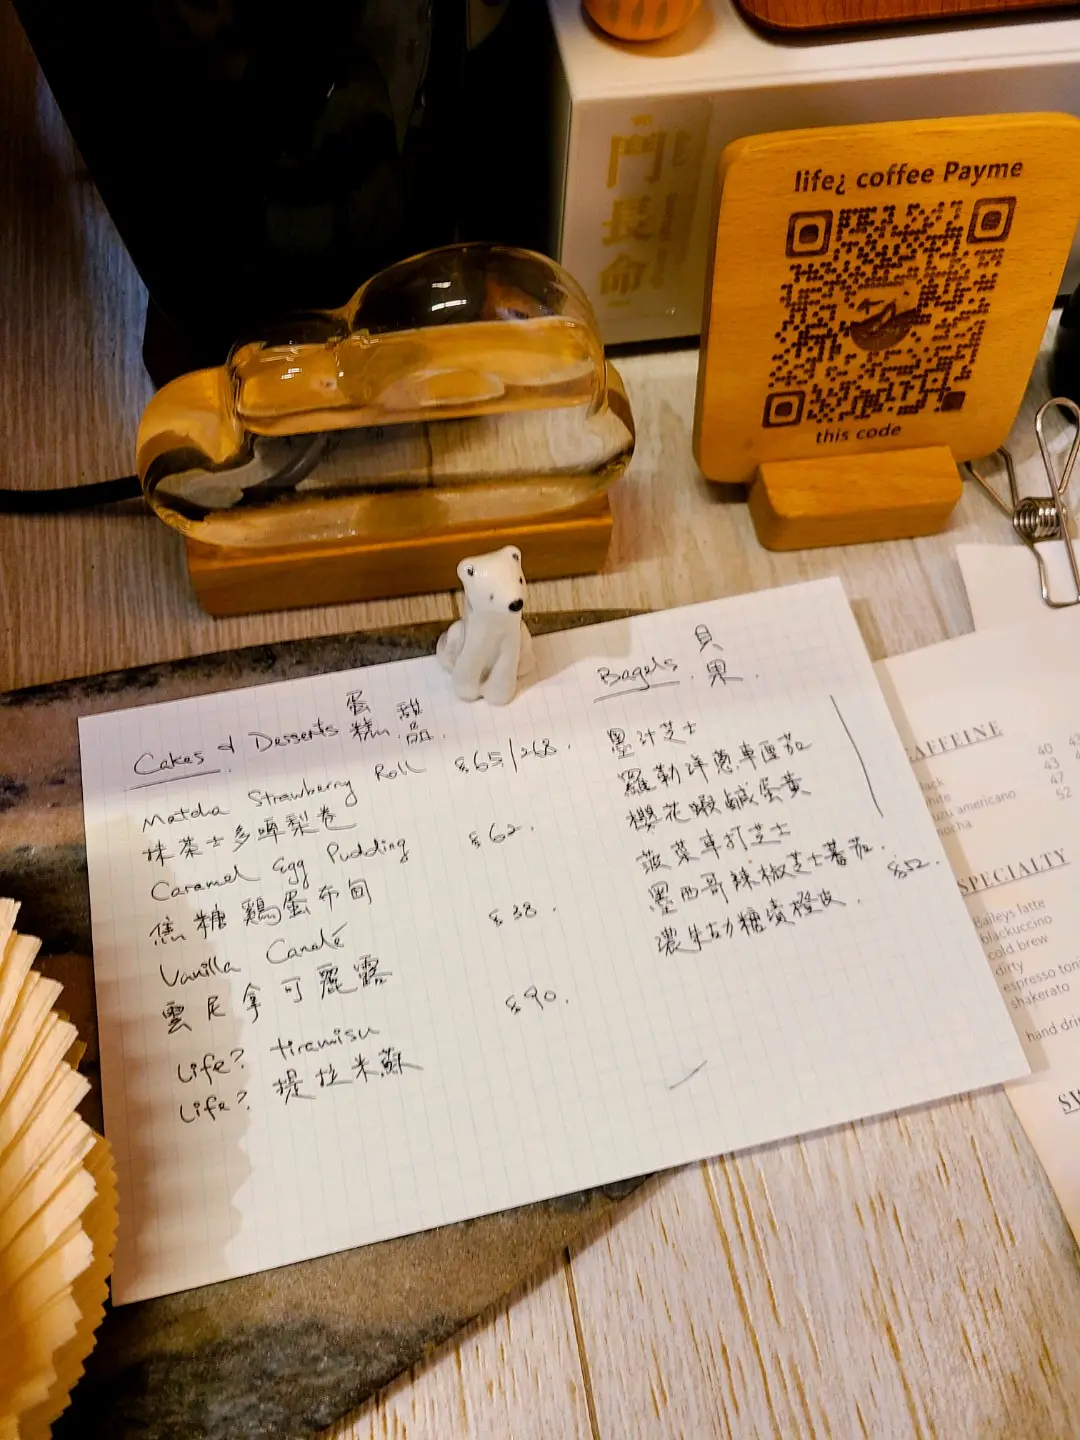 鬥
長
命
life¿ coffee Payme
this code
Cakes & Desserts 蛋糕 甜品.
Matcha Strawberry Roll $65/268.
抹茶士多啤梨卷
Caramel Egg Pudding $62.
焦糖鷄蛋布甸
Vanilla Canelé $38.
雲尼拿可麗露
Life? tiramisu $90.
Life? 提拉米蘇
Bagels 貝果.
墨汁芝士
羅勒洋蔥車厘茄
櫻花蝦鹹蛋黃
菠菜車打芝士
墨西哥辣椒芝士蕃茄. $52.
濃朱古力糖漬橙皮.
CAFFEINE
40
43
47
52
uzu americano
SPECIALTY
Baileys latte
blackuccino
cold brew
dirty
espresso ton
shakerato
hand dri